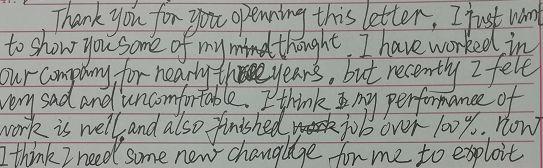 Thank you for you openning this letter. I just want
to show you some of my mind thought I have worked in
our company for nearly three years. but recently I felt
very sad and uncomfortable. I think my performance of
work is well, and also finished work job over 100%. now
I think I need some new changlage for me to exploit